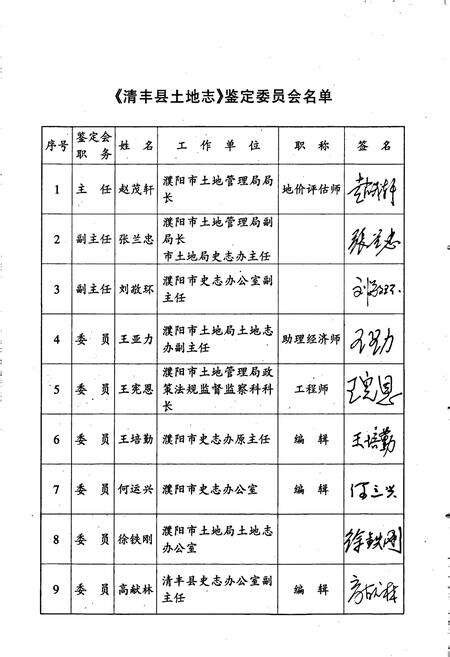 《清丰县土地志》鉴定委员会名单
序号 鉴定会职务 姓名 工作单位 职称 签名
1 主任 赵茂轩 濮阳市土地管理局局长 地价评估师 赵茂轩
2 副主任 张兰忠 濮阳市土地管理局副局长 市土地局史志办主任 张兰忠
3 副主任 刘敬环 濮阳市史志办公室副主任 刘敬环
4 委员 王亚力 濮阳市土地局土地志办副主任 助理经济师 王亚力
5 委员 王宪恩 濮阳市土地管理局政策法规监督监察科科长 工程师 王宪恩
6 委员 王培勤 濮阳市史志办原主任 编辑 王培勤
7 委员 何运兴 濮阳市史志办公室 编辑 何运兴
8 委员 徐铁刚 濮阳市土地局土地志办公室 徐铁刚
9 委员 高献林 清丰县史志办公室副主任 编辑 高献林